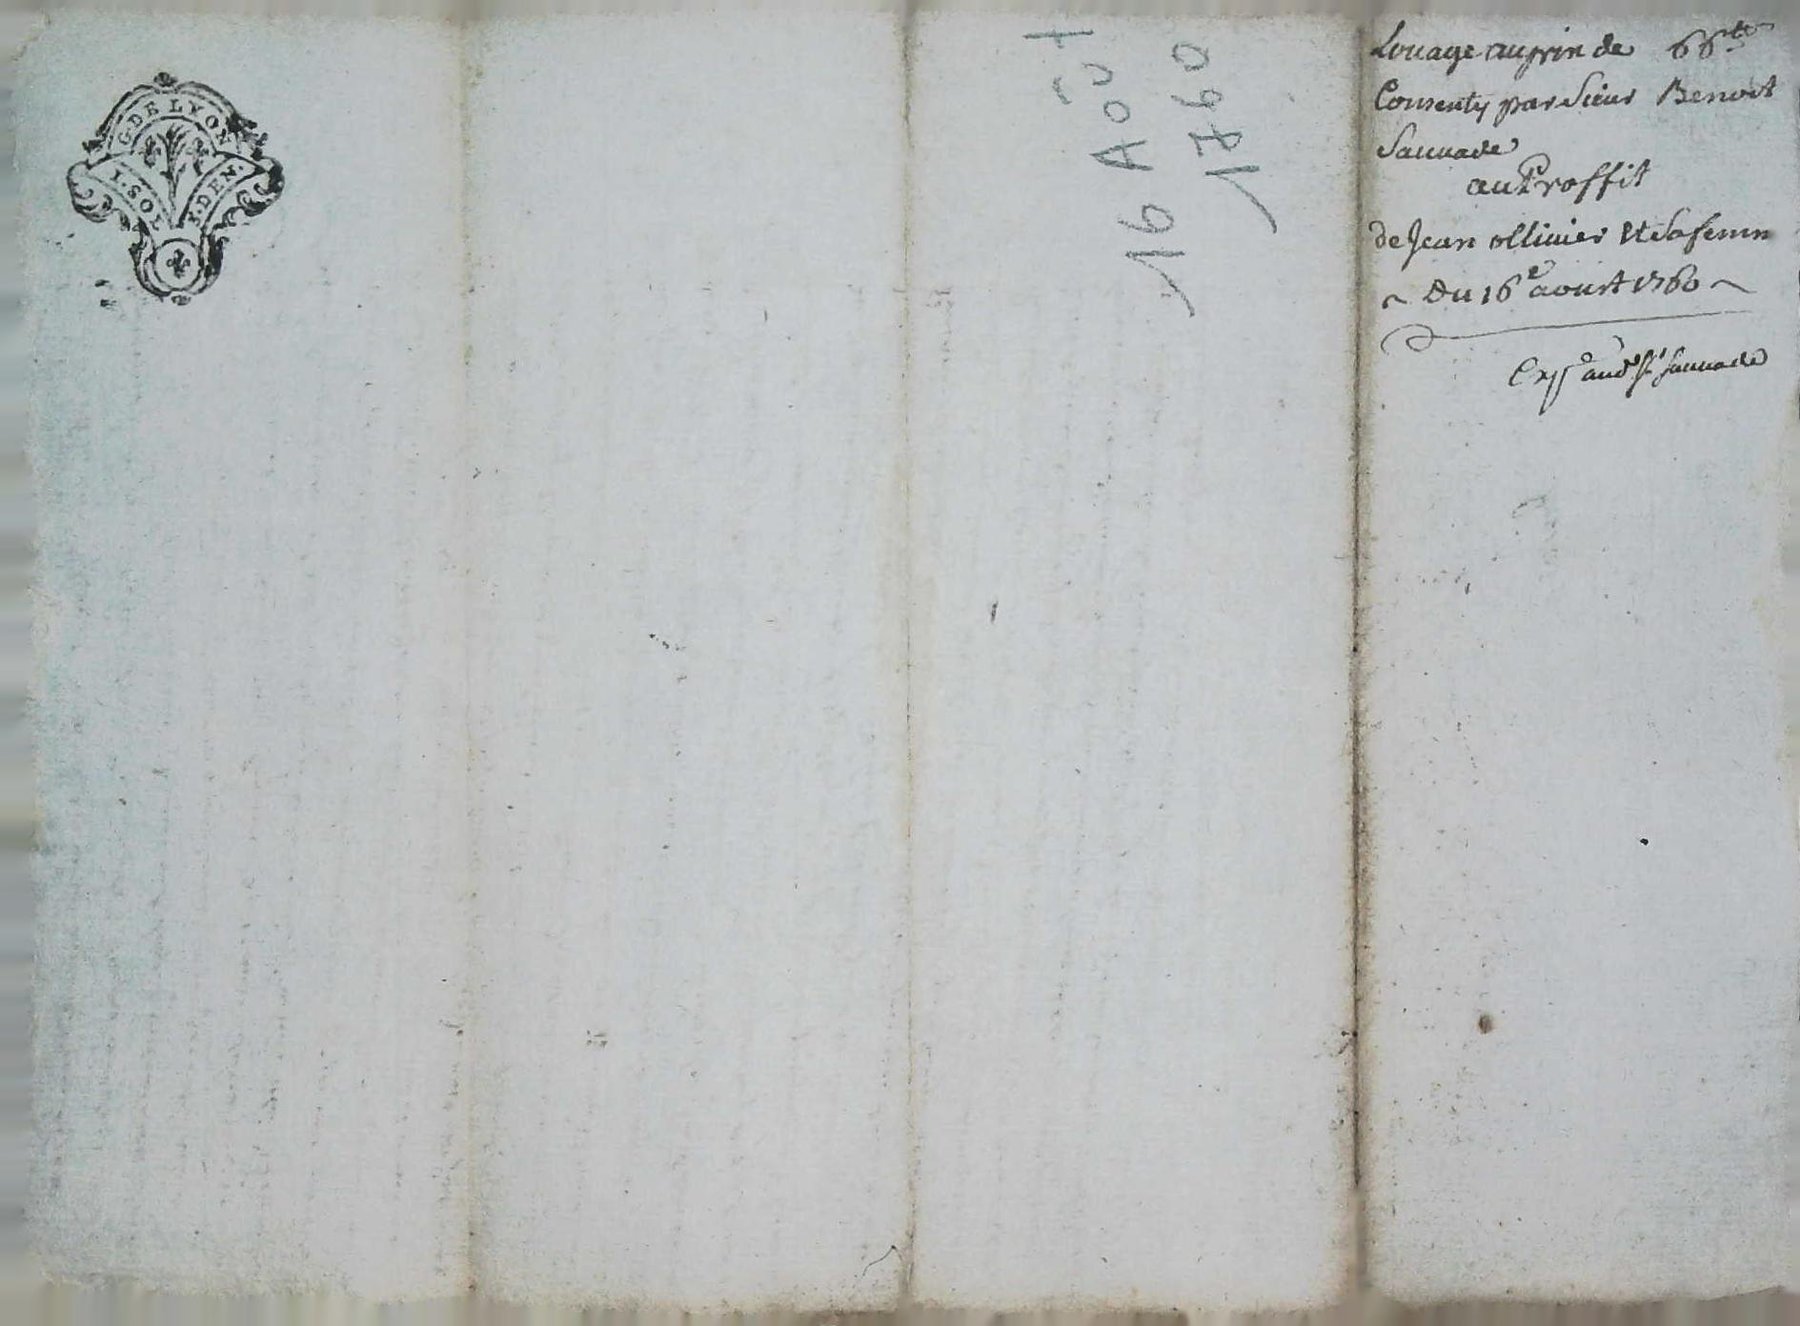 G. DE LYON
1. SOL 4. DEN.
16 Août
1760
Louage au prix de 66tt
Consenty par Sieur Benoit
Sauuade
au Proffit
de Jean ollivier Et Sa femm
~ Du 16e aoust 1760 ~
Exp aud sr Sauuade